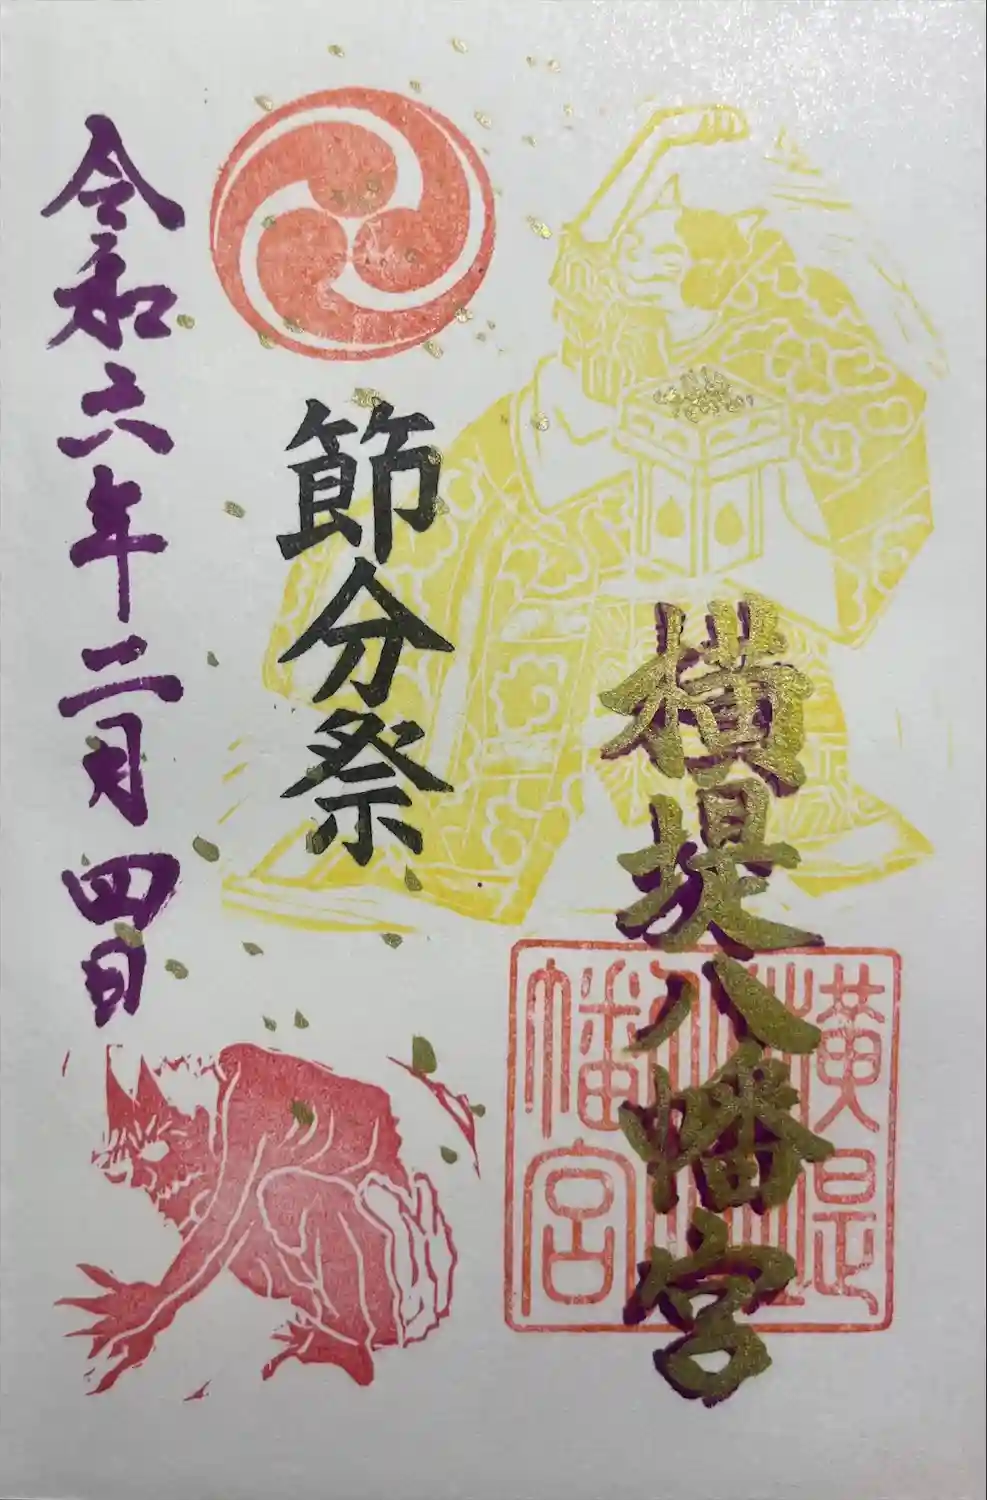 横堤八幡宮
横堤八幡宮
節分祭
令和六年二月四日